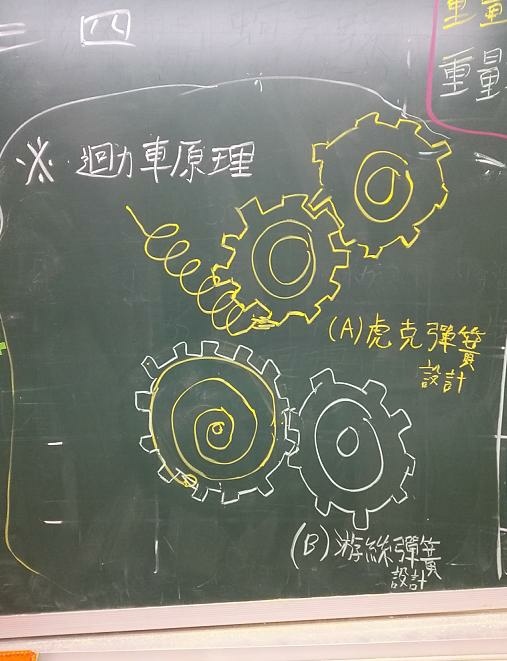 四
重量
重量
※ 迴力車原理
(A)虎克彈簧
設計
(B)游絲彈簧
設計